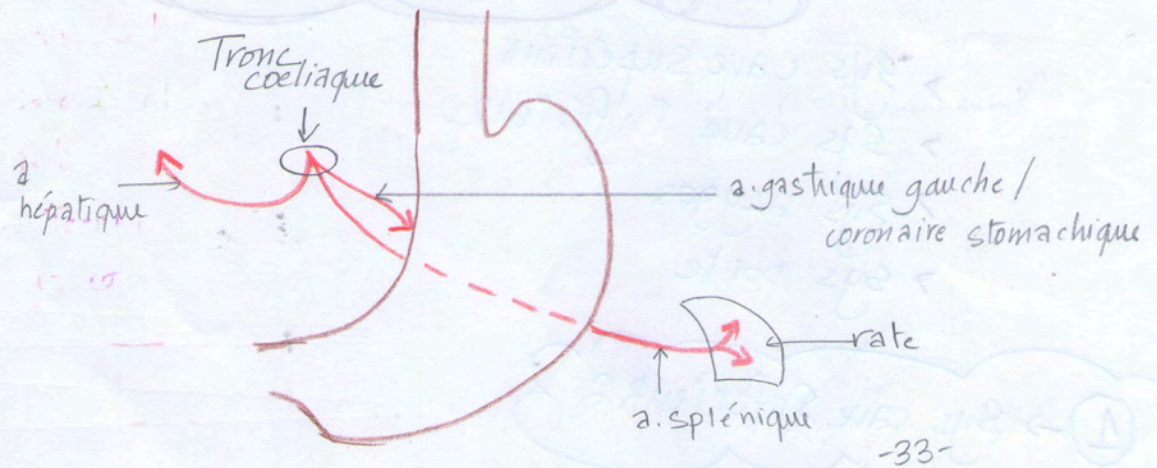 Tronc
coeliaque
a
hépatique
a. gastrique gauche /
coronaire stomachique
rate
a. splénique
-33-